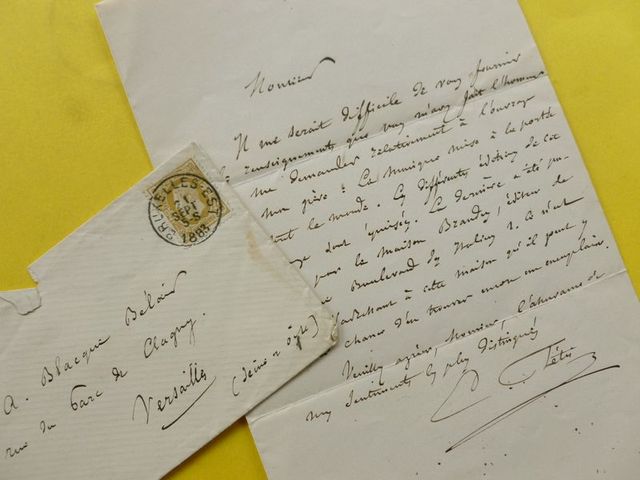 Monsieur
Il me serait difficile de vous fournir
renseignements que vous m'avez fait l'honneur
me demander relativement à l'ouvrage
mon père : La Musique mise à la portée
tout le monde. Les différentes éditions de ce
sont épuisées. La dernière a été pu-
par la maison Brandus, éditeur de
Boulevard des Italiens 1. A n'est
adressant à cette maison qu'il peut y
chance d'en trouver encore un exemplaire.
Veuillez agréer, Monsieur, l'assurance de
mes sentiments les plus distingués
Fétis
BRUXELLES-EST
SEPT
1883
A. Blacque Bélair
rue du Parc de Clagny.
Versailles
(Seine & Oise)